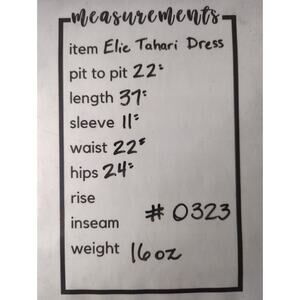 measurements
item Elie Tahari Dress
pit to pit 22"
length 37"
sleeve 11"
waist 22"
hips 24"
rise
# 0323
inseam
weight 16oz